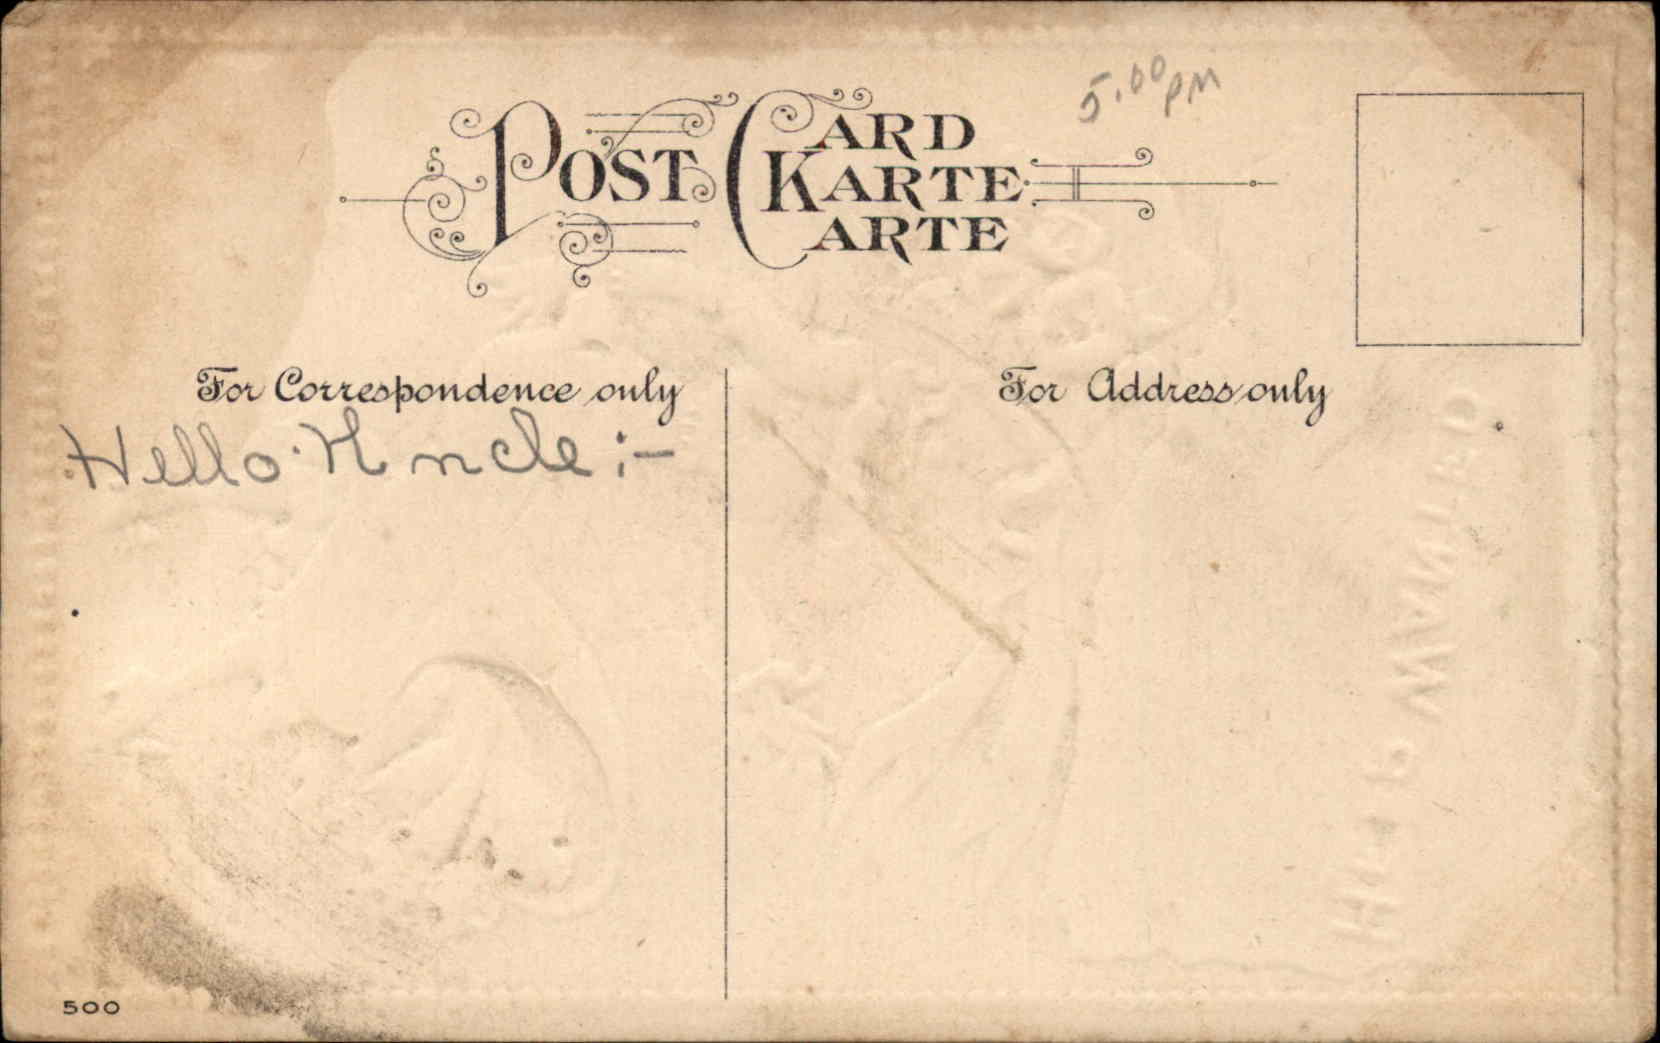 5.00 PM
POST CARD
KARTE
CARTE
For Correspondence only
For Address only
Hello Uncle :-
HELP WANTED
500